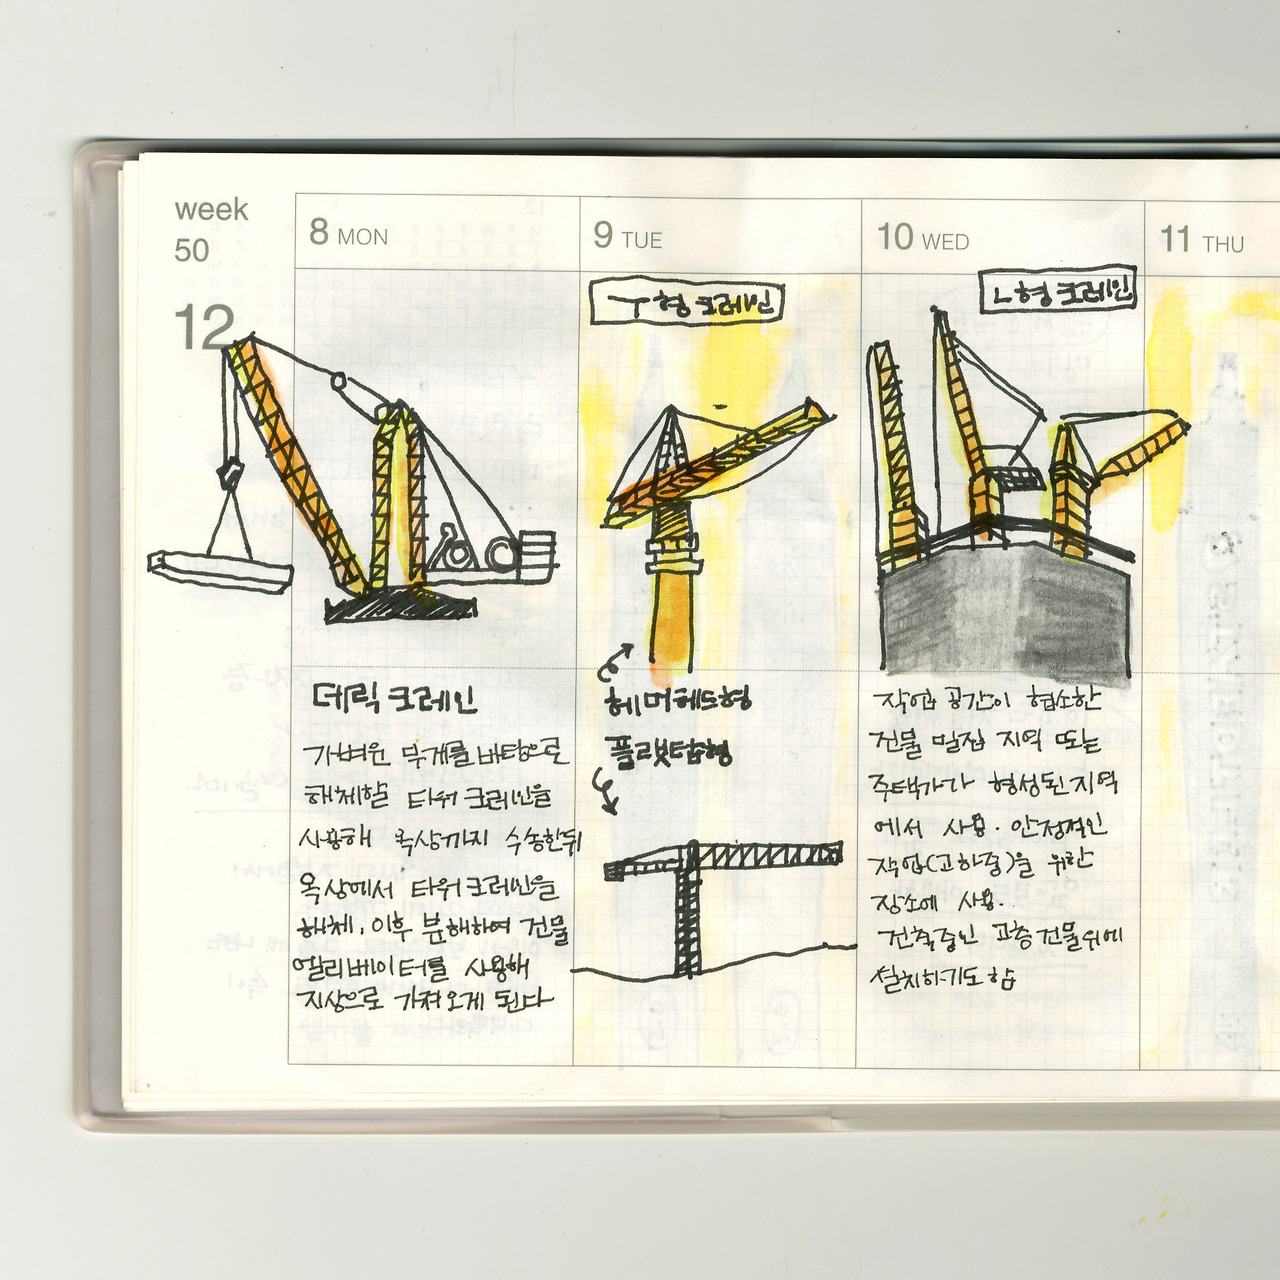 week
50
12
8 MON
데릭 크레인
가벼운 무게를 바탕으로
해체할 타워 크레인을
사용해 옥상까지 수송한뒤
옥상에서 타워크레인을
해체. 이후 분해하여 건물
엘리베이터를 사용해
지상으로 가져오게 된다
9 TUE
ㅜ형 크레인
헤머헤드형
플랫탑형
10 WED
ㄴ형 크레인
작업 공간이 협소한
건물 밀집 지역 또는
주택가가 형성된 지역
에서 사용. 안정적인
작업(고하중)을 위한
장소에 사용.
건축중인 고층건물위에
설치하기도 함
11 THU